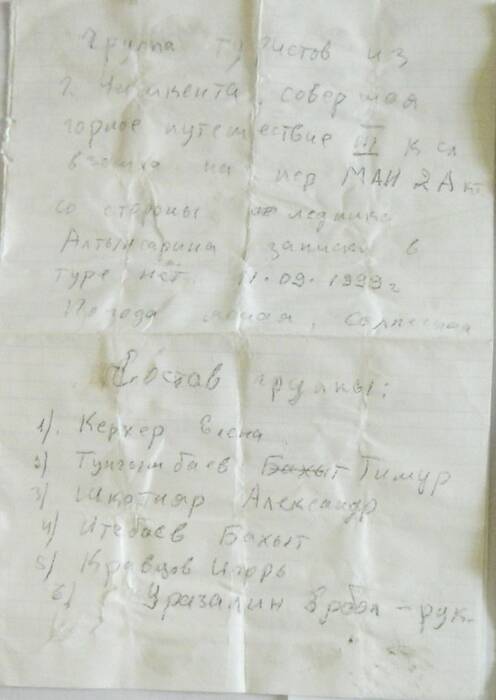 Группа туристов из
г. Чимкента, совершая
горное путешествие III к сл
взошла на пер МАН 2А кт
со стороны ледника
Алтынсарина записки в
туре нет. 11.09.1999г
Погода ясная, солнечная
Состав группы:
1). Керхер Елена
2) Тунгышбаев Бахыт Тимур
3) Шкотняр Александр
4) Итебаев Бахыт
5) Кравцов Игорь
6) Уразалин Ербол - рук.